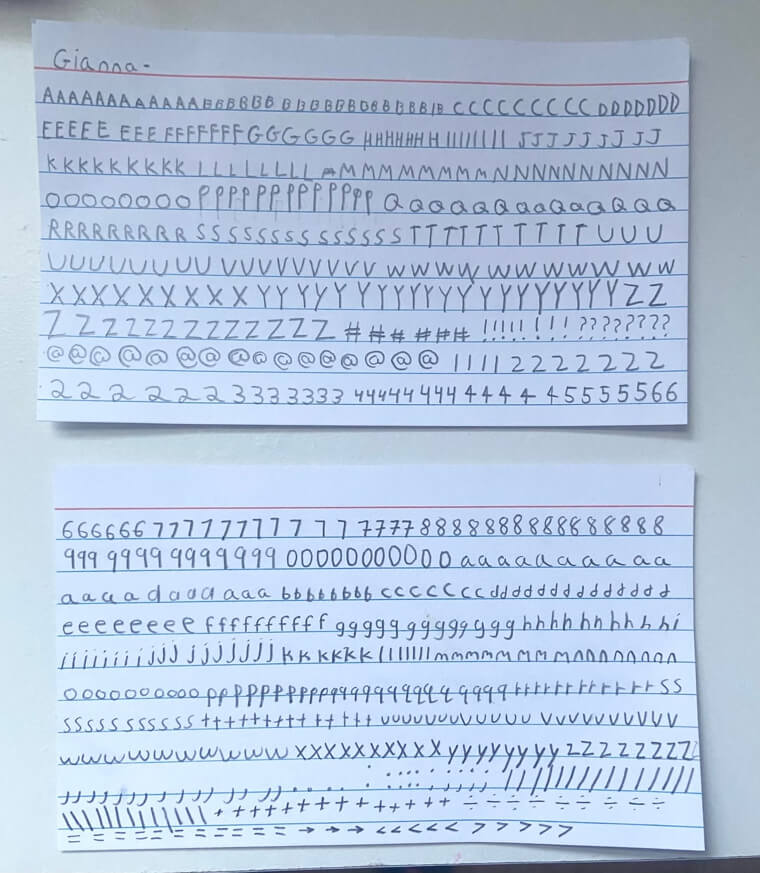 Gianna-
AAAAAAAAAAAAABBBBBB BBBBBBBBBBBBB CCCCCCCCCC DDDDDDD
EEEEE EEE FFFFFFFGGGGGG HHHHHHIIIIIIII JJJJJJJJJ
KKKKKKKKK LLLLLLLL MMMMMMMMNNNNNNNNNN
OOOOOOOO PPPPPPPPPPPPP QQQQQQQQQQQQQQ
RRRRRRRRR SSSSSSSSSSSSSSTTTTTTTTTTUUU
UUUUUUUUU VVVVVVVVVV WWWWWWWWWWWWW
XXXXXXXXXX YYYYYYYYYYYYYYYYYYYYZZ
ZZZZZZZZZZZZZ ####### !!!!!!!! ????????
@@@@@@@@@@@@@@@@ 1111 2222222
2222222 3333333 444444444444 4555566
666666 777777777777777 88888888888888888
999 999999999999 00000000000 aaaaaaaaaa
aaaadaaaaaa bbbbbbbb cccccccc ddddddddddddd
eeeeeeee ffffffffff ggggggggggggg hhhhhhhhhi
iiiiiiiijjjjjjjjjj kkkkkkllllllllmmmmmmmmnnnnnnnn
ooooooooooo pppppppppppqqqqqqqqqqqqqrrrrrrrrrrrrrss
sssssssssss ttttttttttttt uuuuuuuuuuuu vvvvvvvvvvv
wwwwwwwwwww xxxxxxxxxx yyyyyyyy zzzzzzzzz
,,,,,,,,,,,,,,,, ..... :::::: ;;;;; //////////////
\\\\\\\\\\\\\\ ++++++++++++++ ÷÷÷÷÷÷÷÷÷
=========== →→→ <<<<< >>>>>